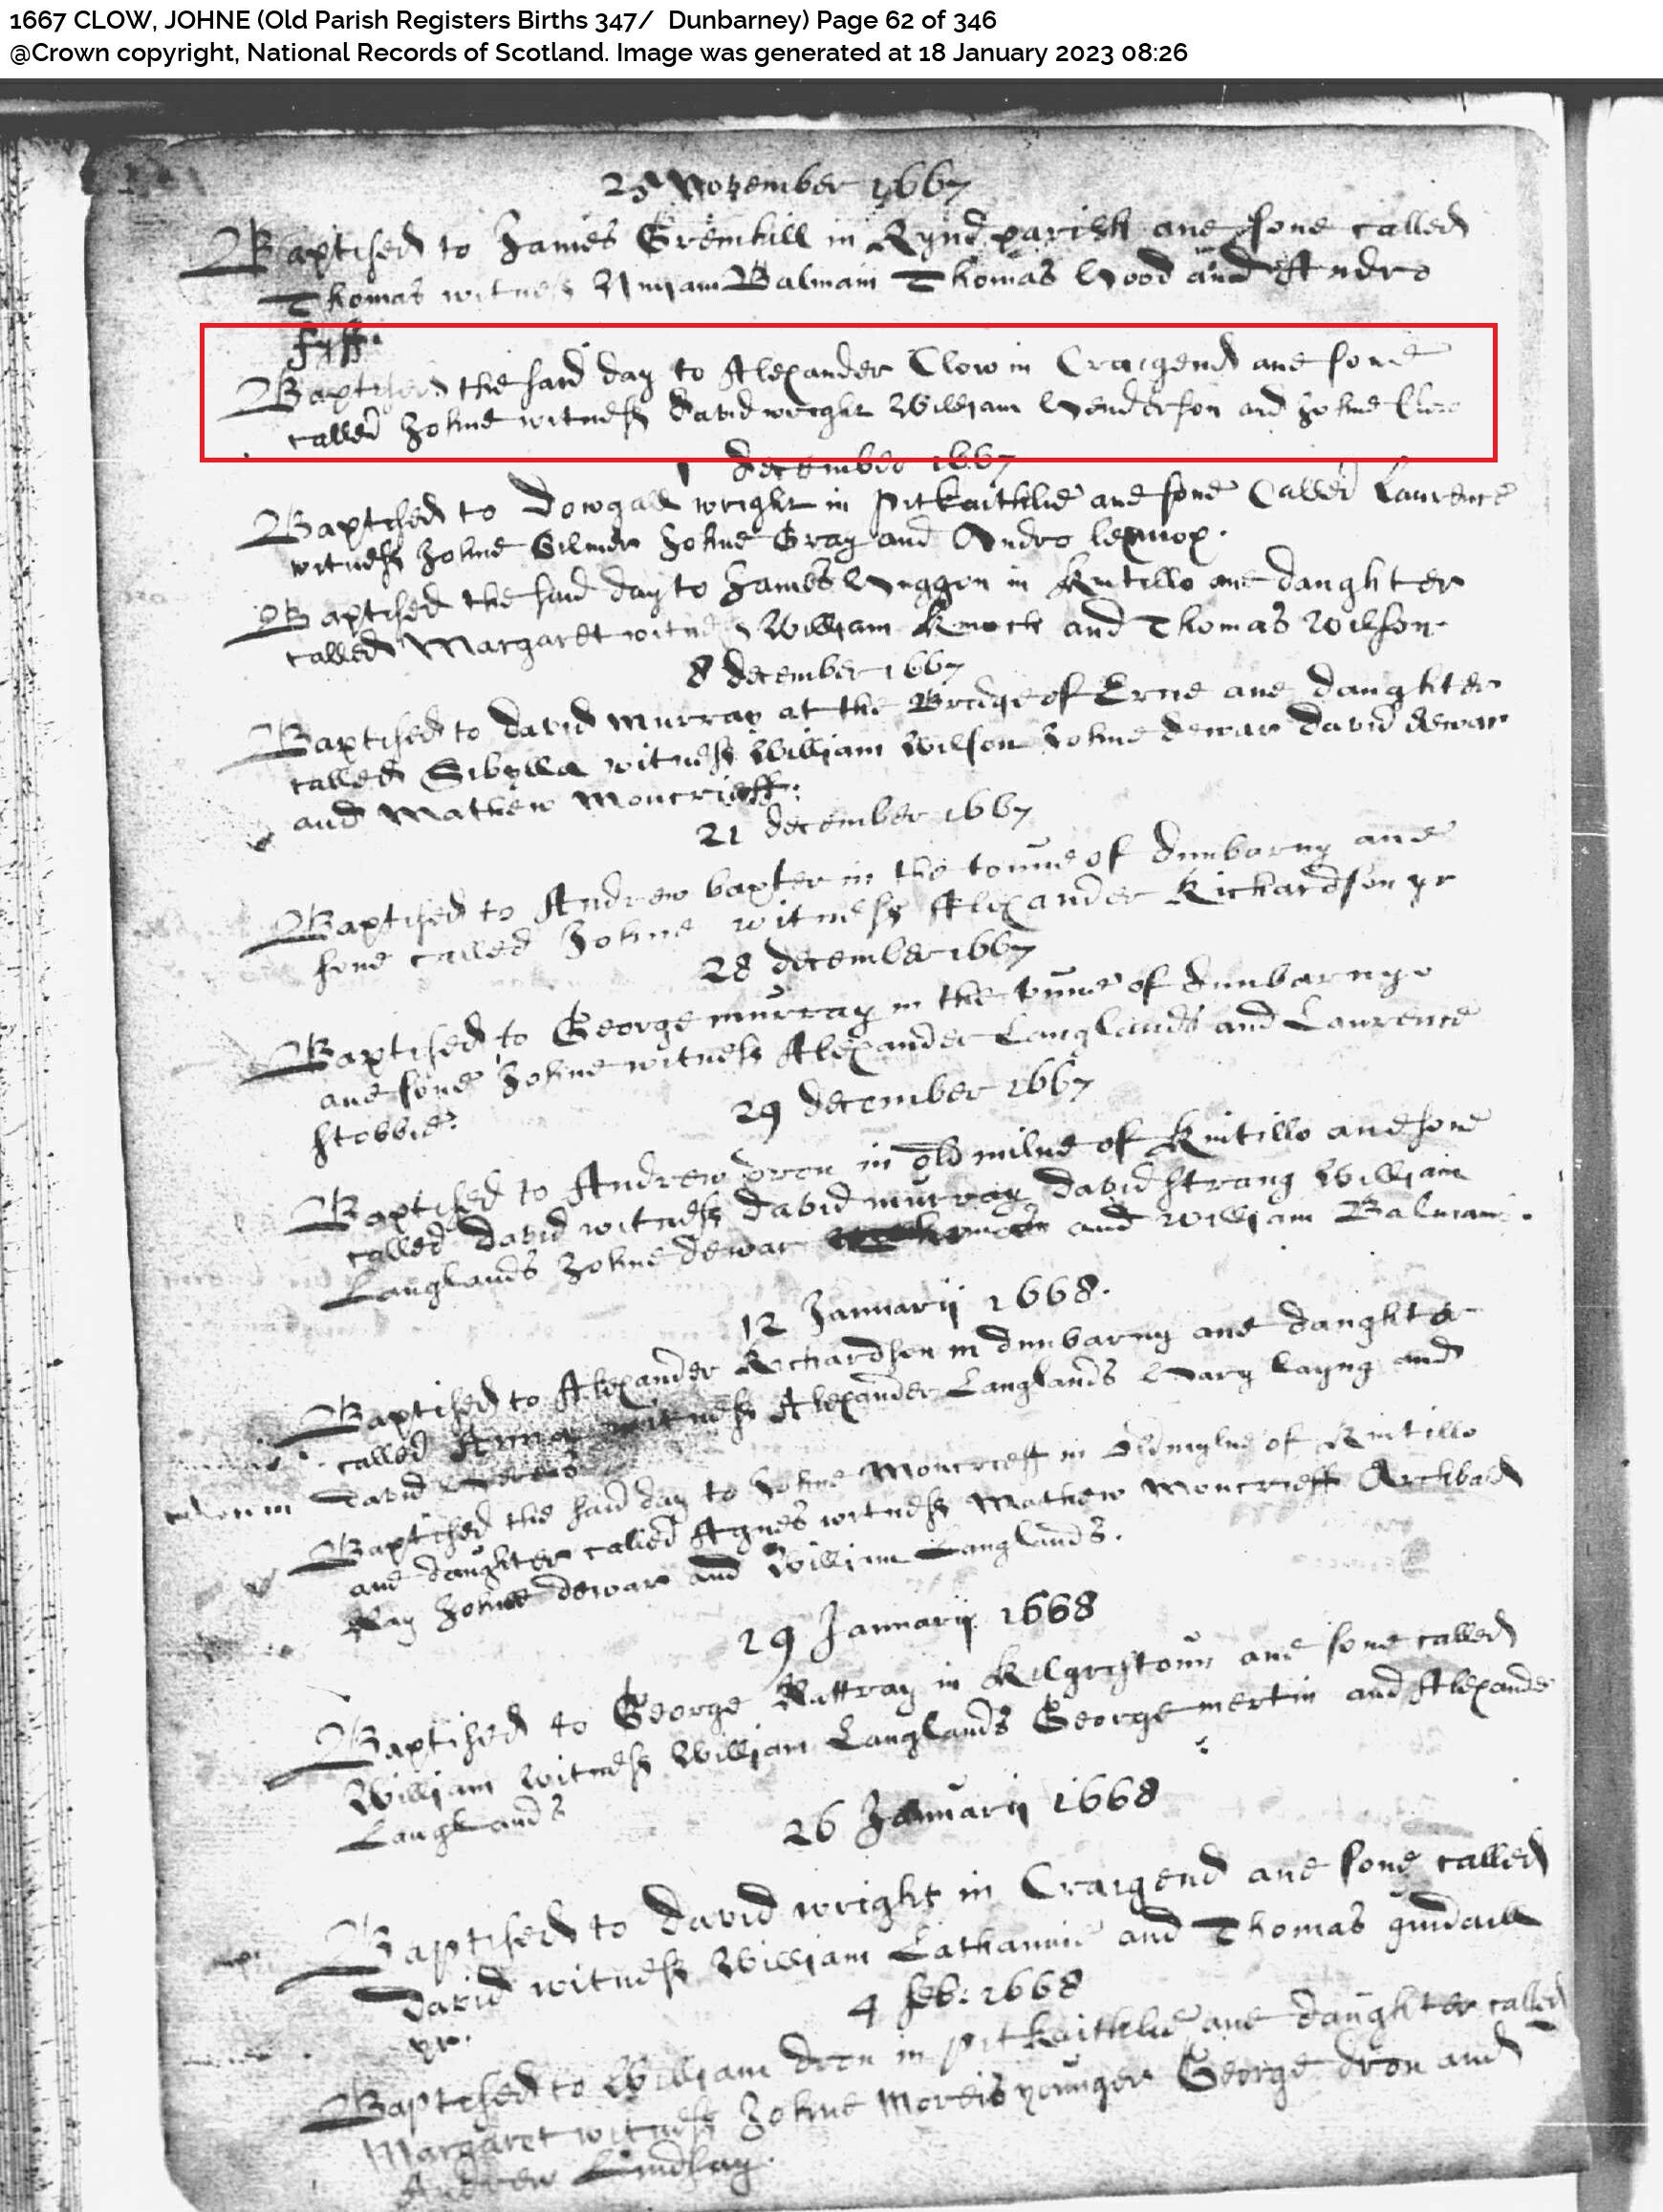 1667 CLOW, JOHNE (Old Parish Registers Births 347/ Dunbarney) Page 62 of 346
@Crown copyright, National Records of Scotland. Image was generated at 18 January 2023 08:26
November 1667
Baptised to James Gremhill in Rynd parish ane sone called
Thomas witness Balmain Thomas Wood and Andro
fyff.
Baptised the said day to Alexander Clow in Craigend ane sone
called Johne witness david wright William Henderson and Johne Clow
1 december 1667
Baptised to Dowgall wright in pitkaithlie ane sone Called Laurence
witness Johne Gilmer Johne Gray and Andro lennox.
Baptised the said day to James in Kintillo ane daughter
called Margaret witness William and Thomas Wilson.
8 december 1667
Baptised to david murray at the Bridge of Erne ane daughter
called Sibylla witness William Wilson Johne dewar david dewar
and Mathew Moncrieff:
21 december 1667
Baptised to Andrew baxter in the toune of dunbarny ane
sone called Johne witness Alexander Richardson yr
28 december 1667
Baptised to George murray in the toune of dunbarnye
ane sone Johne witness Alexander Langlands and Laurence
stobbie:
29 december 1667
Baptised to Andrew dron in old milne of Kintillo ane sone
called david witness david murray david strang William
Langlands Johne dewar and William Balmain.
12 Januarij 1668.
Baptised to Alexander Richardson in dunbarny ane daughter
called Anna witness Alexander Langlands layng and
David
Baptised the said day to Johne Moncrieff in oldmylne of Kintillo
ane daughter called Agnes witness Mathew Moncrieff Archbald
Ray Johne dewar and William Langlands.
19 Januarij 1668
Baptised to George Rattray in Kilgristoun ane sone called
William witness William Langlands George mertin and Alexander
Langlands
26 Januarij 1668
Baptised to david wright in Craigend ane sone called
David witness William and Thomas
yr.
4 feb: 1668
Baptised to William dron in pitkaithlie ane daughter called
Margaret witness Johne Morris younger George dron and
Andrew Lindsay.